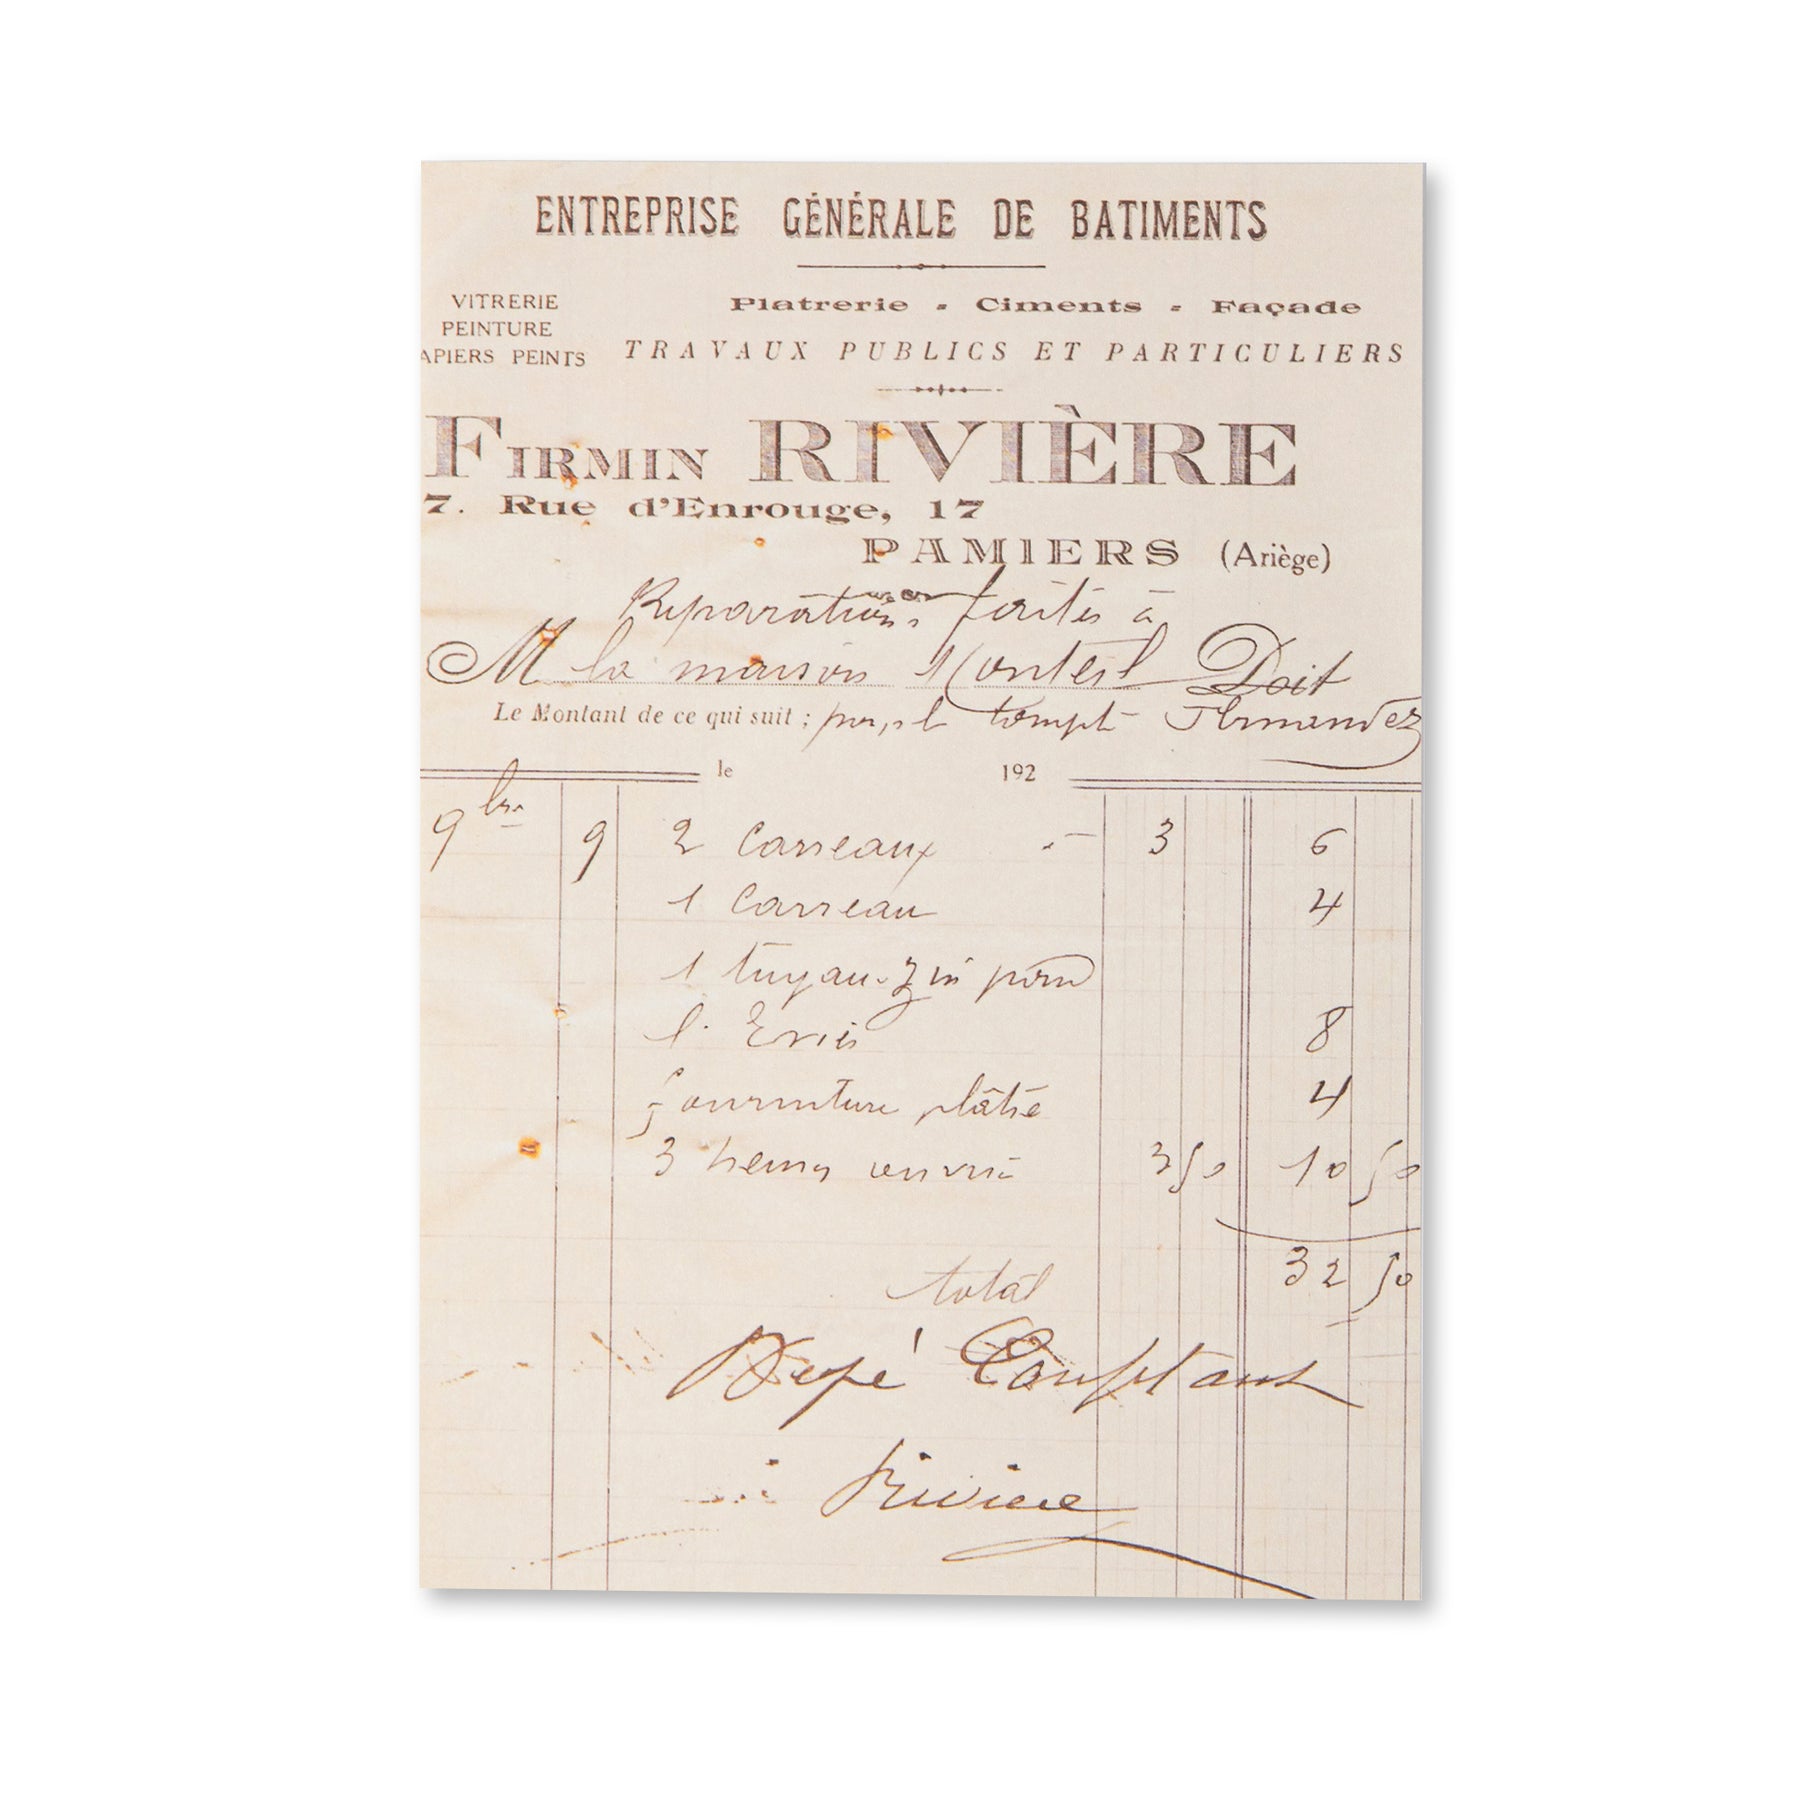 ENTREPRISE GÉNÉRALE DE BATIMENTS
VITRERIE
PEINTURE
APIERS PEINTS
Platrerie - Ciments - Façade
TRAVAUX PUBLICS ET PARTICULIERS
FIRMIN RIVIÈRE
7. Rue d'Enrouge, 17
PAMIERS (Ariège)
Réparations faites à
M la maison Monteil Doit
Le Montant de ce qui suit ; compte
le 192
9bre 9 2 Carreaux 3 6
1 Carreau 4
1 tuyau zin pour
l'Evié 8
fourniture plâtre 4
3 heures ouvrié 3 50 10 50
total 32 50
Comptant
Riviere